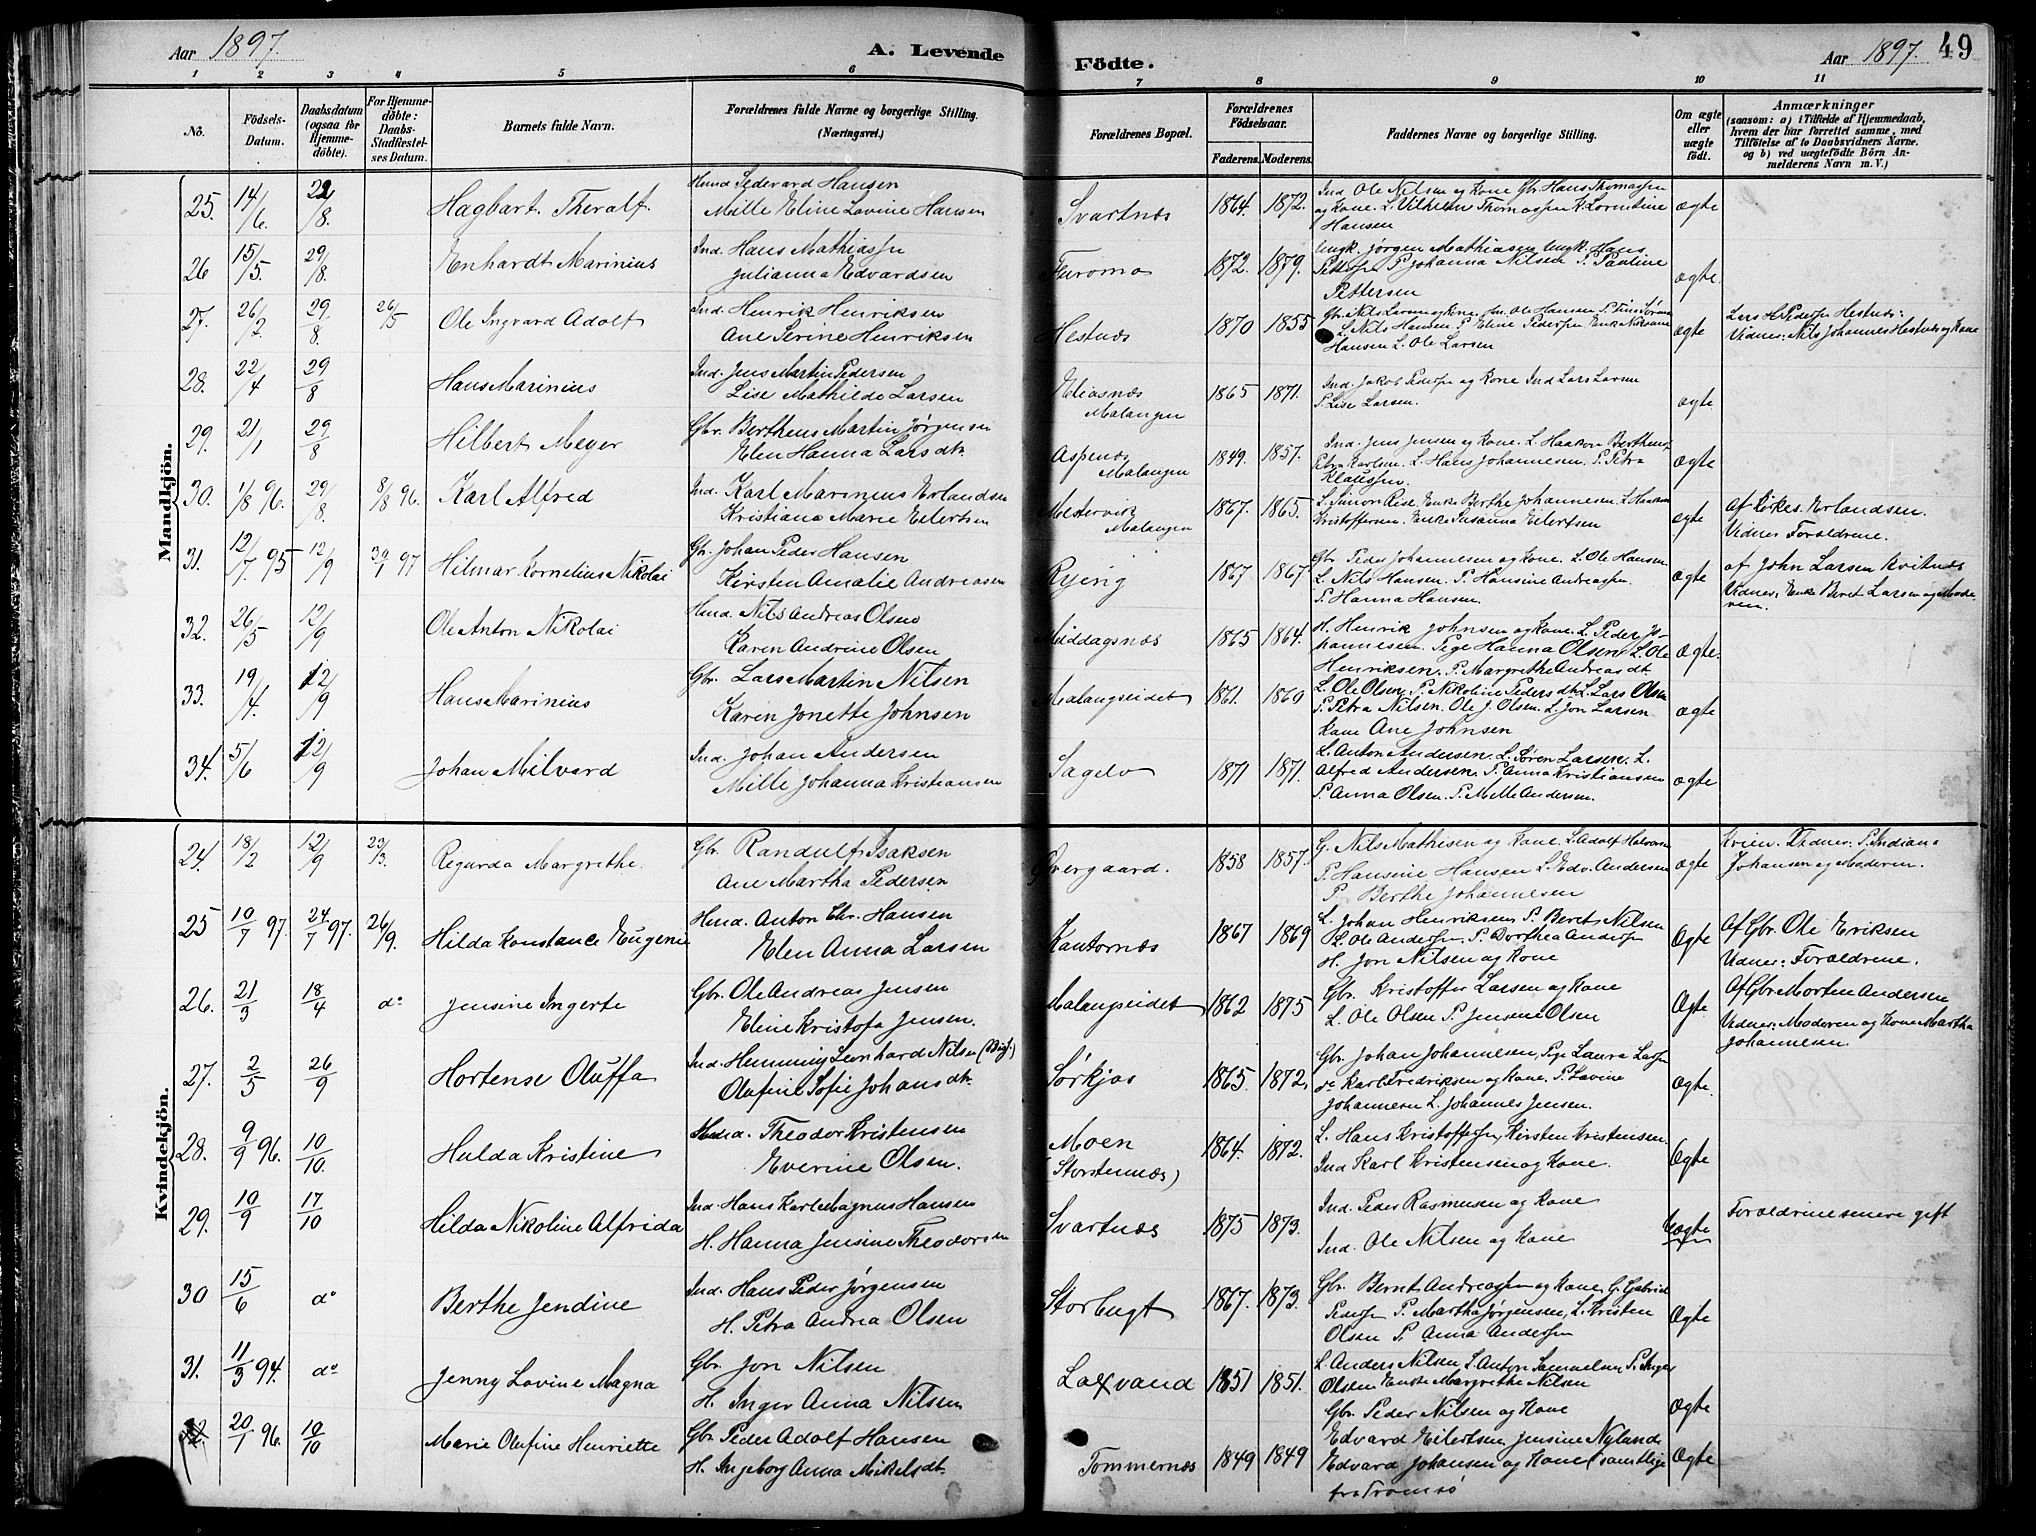 Aar 1897.
A. Levende
Födte.
Aar 1897.
49
1 2 3 4 5 6 7 8 9 10 11
No.
Födsels-
Datum.
Daabsdatum
(ogsaa for
Hjemme-
döbte).
For Hjemme-
döbte:
Daabs-
Stadfæstel-
ses Datum.
Barnets fulde Navn.
Forældrenes fulde Navne og borgerlige Stilling.
(Næringsvei.)
Forældrenes Bopæl.
Forældrenes
Födselsaar.
Faderens. Moderens.
Faddernes Navne og borgerlige Stilling.
Om ægte
eller
uægte
födt.
Anmærkninger
(saasom: a) i Tilfælde af Hjemmedaab,
hvem der har forrettet samme, med
Tilföielse af to Daabsvidners Navne.
og b) ved uægtefödte Börn An-
melderens Navn m. V.)
Mandkjön.
25. 14/6. 22/8. Hagbart Theralf.
Hmd Pedevard Hansen
Mille Eline Lovine Hansen
Svartnæs 1864. 1872.
Ind Ole Nilsen og Kone Gbr Hans Thomassen
og Kone. L. Vilhelm Thomassen K. Lorentine
Hansen
ægte
26 15/5. 29/8. Enhardt Marinius
Ind. Hans Mathiassen
Julianna Edvardsen
Furomo 1872. 1879.
Ungk. Jörgen Mathiasen Ungk. Hans
Pettersen P. Johanna Nilsen P. Pauline
Pettersen
ægte
27. 26/2 29/8. 26/5 Ole Ingvard Adolf
Ind. Henrik Henriksen
Ane Serine Henriksen
Hestnæs 1870 1855
Gbr. Nils Larsen og Kone Ole Hansen
L Nils Hansen. P. Eline Pedersen Enke
Hansen L. Ole Larsen
ægte
Lars H. Pedersen Hestnæs:
Vidner: Nils Johannes Hestnæs og Kone
28. 22/4 29/8 Hans Marinius
Ind. Jens Martin Pedersen
Lise Mathilde Larsen
Eliasnæs
Malangen
1865 1871.
Ind. Jakob Pedersen og Kone Ind Lars Larsen
P. Lise Larsen.
ægte
29. 21/1 29/8 Hilbert Meyer
Gbr. Bertheus Martin Jørgensen
Elen Hanna Larsdtr.
Aspenæs
Malangen
1849. 1857.
Ind. Jens Jensen og Kone. L. Haakon Bertheus,
Petra Karlsen. L. Hans Johannesen. P. Petra
Klaussen.
ægte
30. 1/8 96. 29/8. 8/8 96. Karl Alfred
Ind. Karl Marinius Erlandsen
Kristiane Marie Eilertsen
Mestervik
Malangen
1867. 1865.
L. Simon Rise. Enke Berthe Johannesen. L. Haakon
Kristoffersen. Enke Susanna Eilertsen
ægte
Af Erlandsen.
Vidner Forældrene.
31. 12/7. 95 12/9 30/1 97 Hilmar Kornelius Nikolai
Gbr. Johan Peder Hansen
Kirsten Amalie Andreasen
Ryeng 1867 1867
Gbr. Peder Johannesen og Kone. L. Ole Hansen.
L. Nils Hansen. P. Hansine Andreassen.
P. Hanna Hansen.
ægte
af John Larsen Kvitnæs
Vidner: Enke Beret Larsen og Mode-
ren.
32. 26/5 12/9 Ole Anton Nikolai
Hmd. Nils Andreas Olsen
Karen Andrine Olsen
Middagsnæs 1865 1864.
H. Henrik Johnsen og Kone. L. Peder Jo-
hannesen. Pige Hanna Olsen L. Ole
Henriksen. P. Margrethe Andreasdt.
ægte.
33. 19/4. 12/9 Hans Marinius
Gbr. Lars Martin Nilsen
Karen Jonette Johnsen
Malangseidet 1861. 1860
L. Ole Olsen, P. Nikoline Pedersdtr. L. Lars Olsen
P. Petra Nilsen. Ole J. Olsen. L. Jon Larsen
Kone Ane Johnsen
ægte
34. 5/6 12/9 Johan Milvard
Ind. Johan Andersen
Mille Johanna Kristiansen
Sagelv 1871 1871.
L. Anton Andersen. L. Sören Larsen. L.
Alfred Andersen. P. Anna Kristiansen
P. Anna Olsen. P. Mille Andersen.
ægte
Kvindekjön.
24. 18/2 12/9 23/3. Regarda Margrethe.
Gbr. Randulf Isaksen
Ane Martha Pedersen
Övergaard. 1858 1857.
G. Nils Mathisen og Kone L. Adolf Halvorsen
P. Hansine Hansen L. Edv. Andersen
P. Berthe Johannesen
ægte
Vidner: P. Indiana
Johansen og Moderen.
25 10/7 97. 24/7 97. 26/9. Hilda Konstance Eugenie
Hmd. Anton Chr. Hansen
Elen Anna Larsen
Kantornæs 1867 1869
L. Johan Henriksen P. Beret Nilsen
L. Ole Andersen. P. Dorthea Andersen
H. Jon Nilsen og Kone
Ægte
Af Gbr. Ole Eriksen
Vidner: Forældrene.
26. 21/3 18/4 do Jensine Ingerte
Gbr. Ole Andreas Jensen
Eline Kristofa Jensen.
Malangseidet 1862 1875
Gbr. Kristoffer Larsen og Kone
L. Ole Olsen P. Jensine Olsen
Ægte
Af Gbr Morten Andersen
Vidner: Moderen og Kone Martha
Johannesen.
27. 2/5 26/9 Hortense Oluffa
Ind. Hemming Leonhard Nilsen
Olufine Sofie Johansdtr.
Sørkjos 1865. 1872,
Gbr. Johan Johannesen, Pige Laura Larsen
do Karl Fredriksen og Kone. P. Lovine
Johannesen L. Johannes Jensen.
Ægte.
28. 9/9 96. 10/10. Hulda Kristine
Hmd. Theodor Kristensen
Everine Olsen.
Moen
(Storstennæs)
1864. 1872.
L. Hans Kristoffersen, Kirsten Kristensen.
Ind Karl Kristensen og Kone.
Ægte
29. 10/9 17/10 Hilda Nikoline Alfrida
Ind. Hans Karl Magnus Hansen
H. Hanna Jensine Theodorsen
Svartnæs 1875 1873.
Ind. Peder Rasmusen og Kone
Ind. Ole Nilsen og Kone
Uægte
Forældrene senere gift
30 15/6 do Berthe Jendine
Ind. Hans Peder Jørgensen
H. Petra Andrea Olsen
Storbugt 1867. 1873.
Gbr. Bernt Andreassen og Kone, G. Gabriel
Pedersen P. Martha Jørgensen, L. Kristen
Olsen P. Anna Andersen
Ægte
31. 11/3 94. do Jenny Lovine Magna
Gbr. Jon Nilsen
H. Inger Anna Nilsen
Laxvand 1851 1851.
L. Anders Nilsen L. Anton Samuelsen P. Inger
Olsen Enke Margrethe Nilsen
Gbr. Peder Nilsen og Kone
Ægte
32. 20/1 96. 10/10 Marie Olufine Henriette
Gbr Peder Adolf Hansen
H. Ingeborg Anna Mikelsdtr.
Tommernæs 1849 1849
Edvard Eilertsen Jensine Nyland
Edvard Johansen og Kone (samtlige
fra Tromsø
Ægte